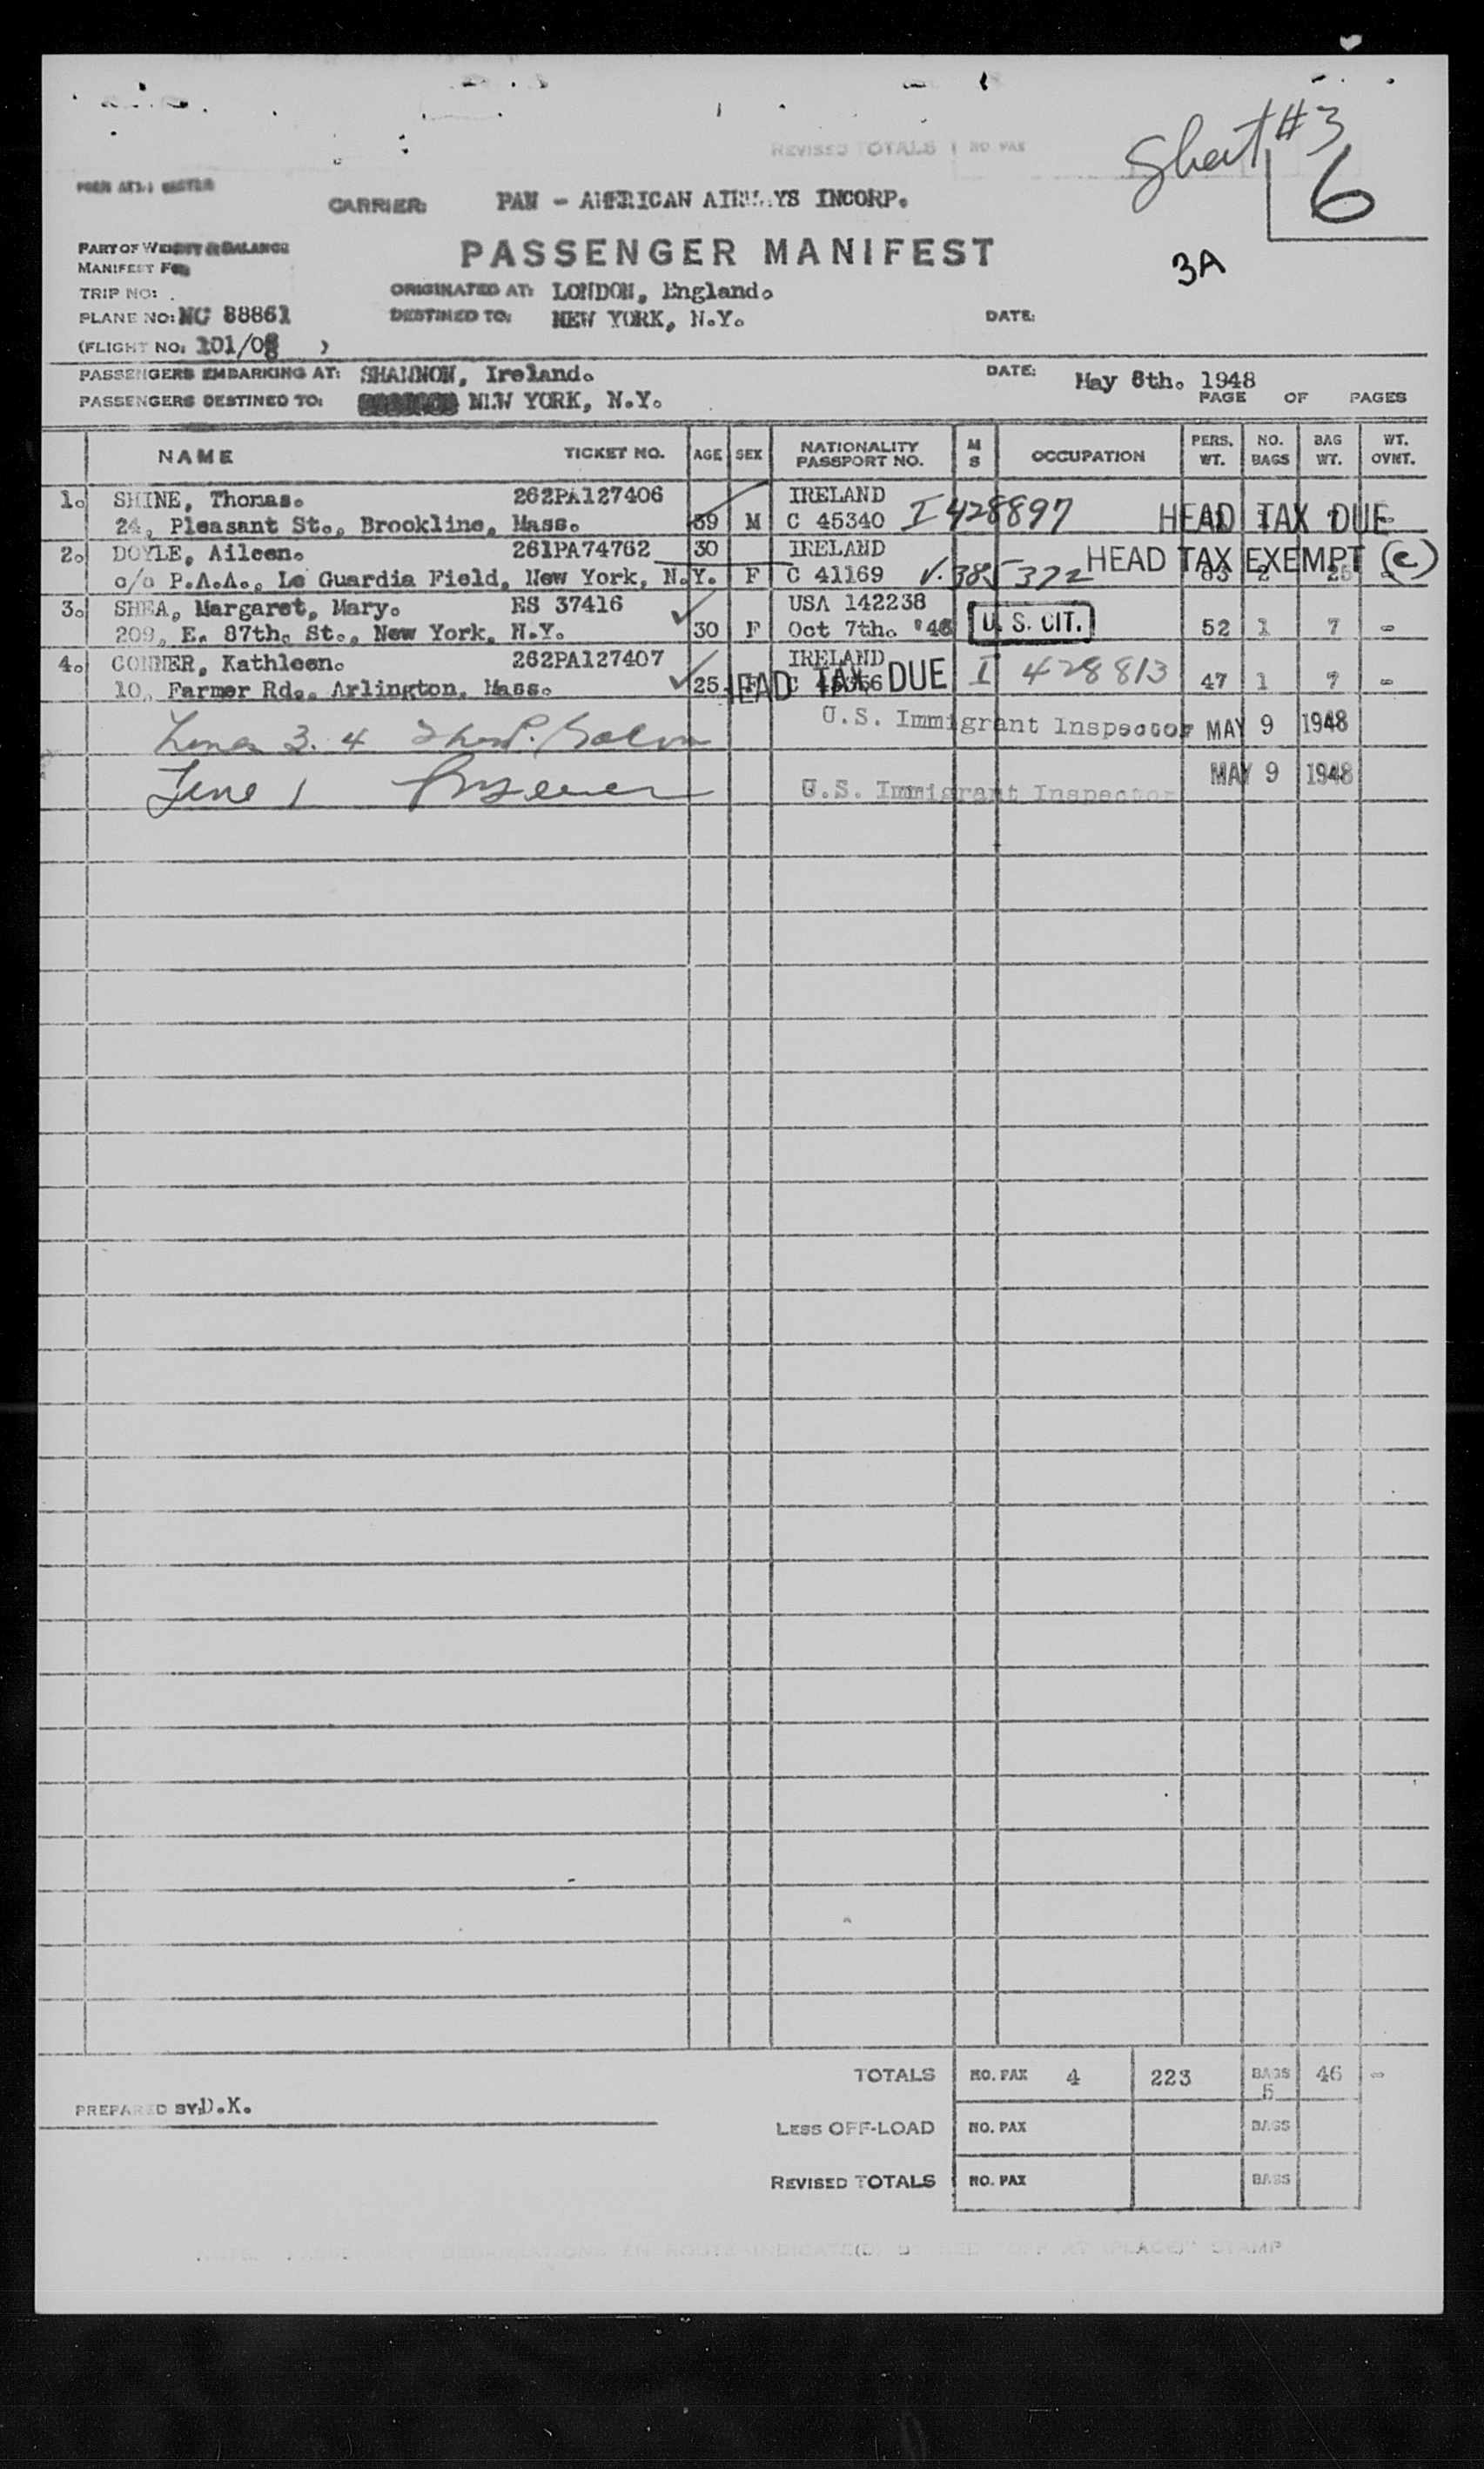 REVISED TOTALS NO PAX
Sheet #3
6
3A
CARRIER: PAN - AMERICAN AIRWAYS INCORP.
PART OF WEIGHT & BALANCE
MANIFEST FOR
PASSENGER MANIFEST
TRIP NO: ORIGINATED AT: LONDON, England.
PLANE NO: NC 88861 DESTINED TO: NEW YORK, N.Y. DATE:
(FLIGHT NO: 101/08 )
PASSENGERS EMBARKING AT: SHANNON, Ireland. DATE: May 8th. 1948
PASSENGERS DESTINED TO: NEW YORK, N.Y. PAGE OF PAGES
NAME TICKET NO. AGE SEX NATIONALITY PASSPORT NO. M S OCCUPATION PERS. WT. NO. BAGS BAG WT. WT. OVNT.
1. SHINE, Thomas. 262PA127406 IRELAND I 428897 HEAD TAX DUE
24, Pleasant St., Brookline, Mass. 39 M C 45340
2. DOYLE, Aileen. 261PA74762 30 IRELAND HEAD TAX EXEMPT (c)
c/o P.A.A., La Guardia Field, New York, N.Y. F C 41169 V. 385372 2 25 -
3. SHEA, Margaret, Mary. ES 37416 USA 142238
209, E. 87th. St., New York, N.Y. 30 F Oct 7th. '46 U.S. CIT. 52 1 7 -
4. CONNER, Kathleen. 262PA127407 IRELAND HEAD TAX DUE I 428813
10, Farmer Rd., Arlington, Mass. 25 F C 47 1 7 -
Lines 3. 4 U.S. Immigrant Inspector MAY 9 1948
Line 1 U.S. Immigrant Inspector MAY 9 1948
TOTALS NO. PAX 4 223 BAGS 5 46 -
PREPARED BY: D.K.
LESS OFF-LOAD NO. PAX BAGS
REVISED TOTALS NO. PAX BAGS